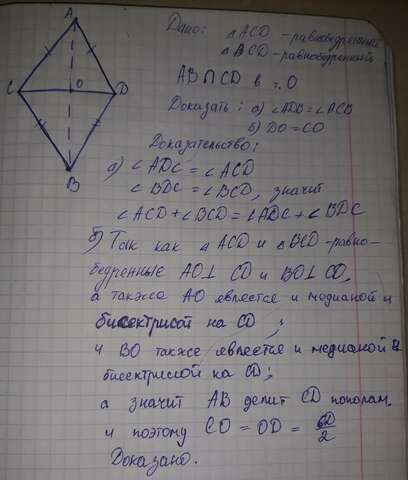 A
C
O
D
B
Дано: △ACD - равнобедренный
△BCD - равнобедренный
AB∩CD в т. O
Доказать: а) ∠ADB = ∠ACB
б) DO = CO
Доказательство:
а) ∠ADC = ∠ACD
∠BDC = ∠BCD, значит
∠ACD + ∠BCD = ∠ADC + ∠BDC
б) Так как △ACD и △BCD - равно-
бедренные AO⊥ CD и BO⊥ CO,
а также AO является и медианой и
биссектрисой на CD ;
и BO также является и медианой и
биссектрисой на CD;
а значит AB делит CD пополам,
и поэтому CO = OD = CD/2
Доказано.